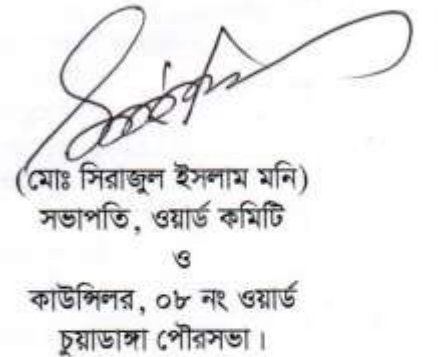 (মোঃ সিরাজুল ইসলাম মনি)
সভাপতি, ওয়ার্ড কমিটি
ও
কাউন্সিলর, ০৮ নং ওয়ার্ড
চুয়াডাঙ্গা পৌরসভা।